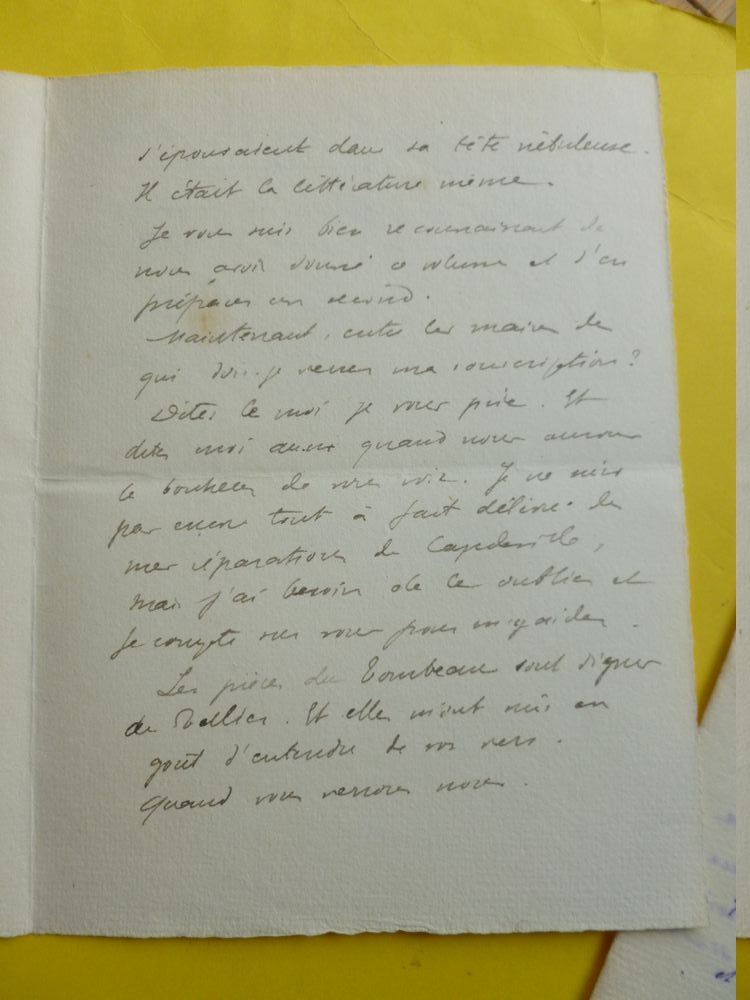 s'épousaient dans sa tête nébuleuse.
Il était la littérature même.
Je vous suis bien reconnaissant de
nous avoir donné ce volume et d'en
préparer un second.
Maintenant, entre les mains de
qui dois-je verser ma souscription?
Dites le moi je vous prie. Et
dites moi aussi quand nous aurons
le bonheur de vous voir. Je ne suis
pas encore tout à fait délivré des
mes réparations de Capdeville,
mais j'ai besoin de les oublier et
je compte sur vous pour m'y aider.
Les pièces du Tombeau sont dignes
de Tellier. Et elles m'ont mis en
goût d'entendre de vos vers.
Quand vous verrons nous.